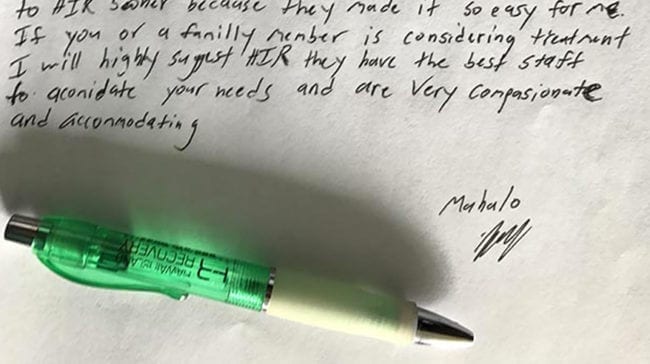 to HIR sooner because they made it so easy for me.
If you or a familly member is considering treatment
I will highly suggest HIR they have the best staff
to aconidate your needs and are very compasionate
and acconmodating
Mahalo
HAWAII ISLAND
RECOVERY